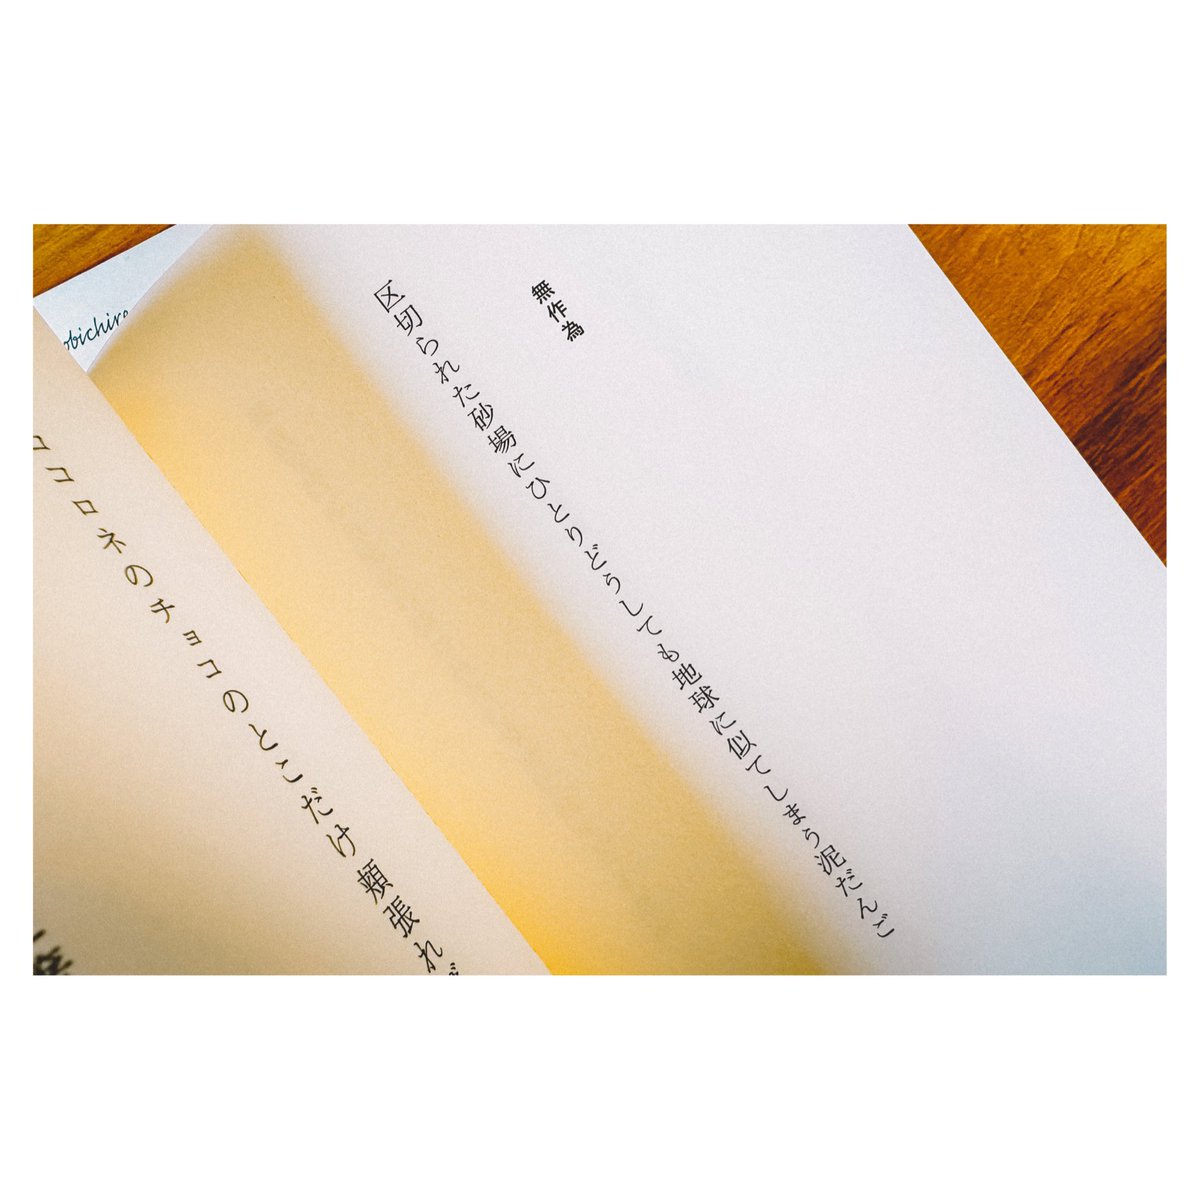 無作為
区切られた砂場にひとりどうしても地球に似てしまう泥だんご
コロネのチョコのとこだけ頬張れ